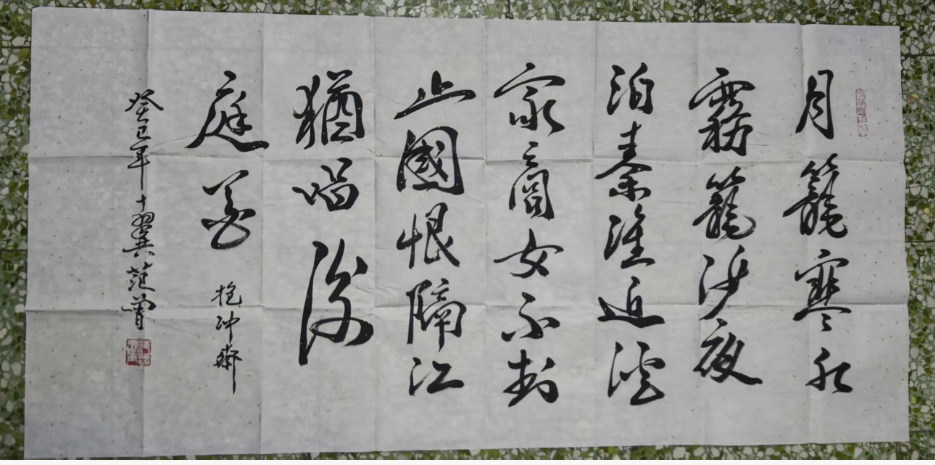 月籠寒水
霧籠沙夜
泊秦淮近酒
家商女不知
亡國恨隔江
猶唱後
庭花
抱沖齋
癸巳年十翼范曾